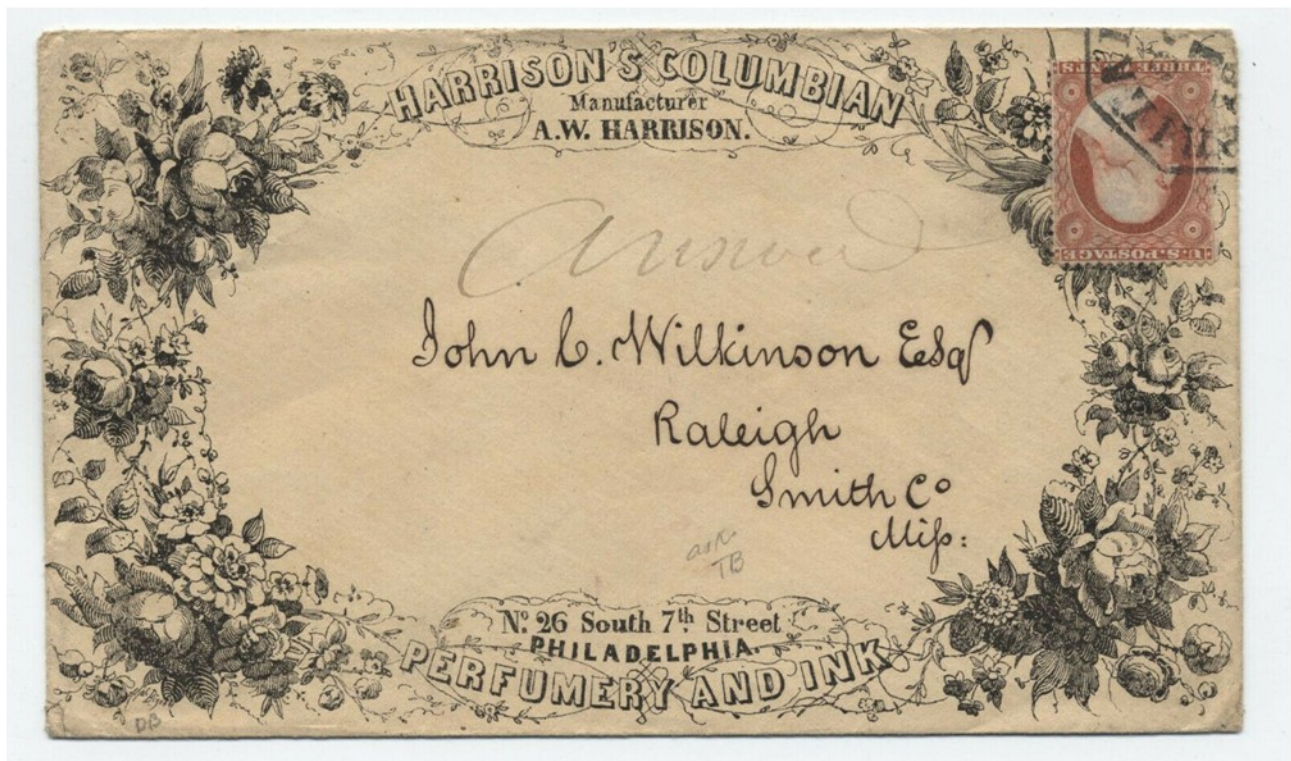 HARRISON'S COLUMBIAN
Manufacturer
A.W. HARRISON.
THREE CENTS
U.S. POSTAGE
Answered
John C. Wilkinson Esq
Raleigh
Smith Co
Miſs:
ask
TB
No. 26 South 7th Street
PHILADELPHIA.
PERFUMERY AND INK
DB